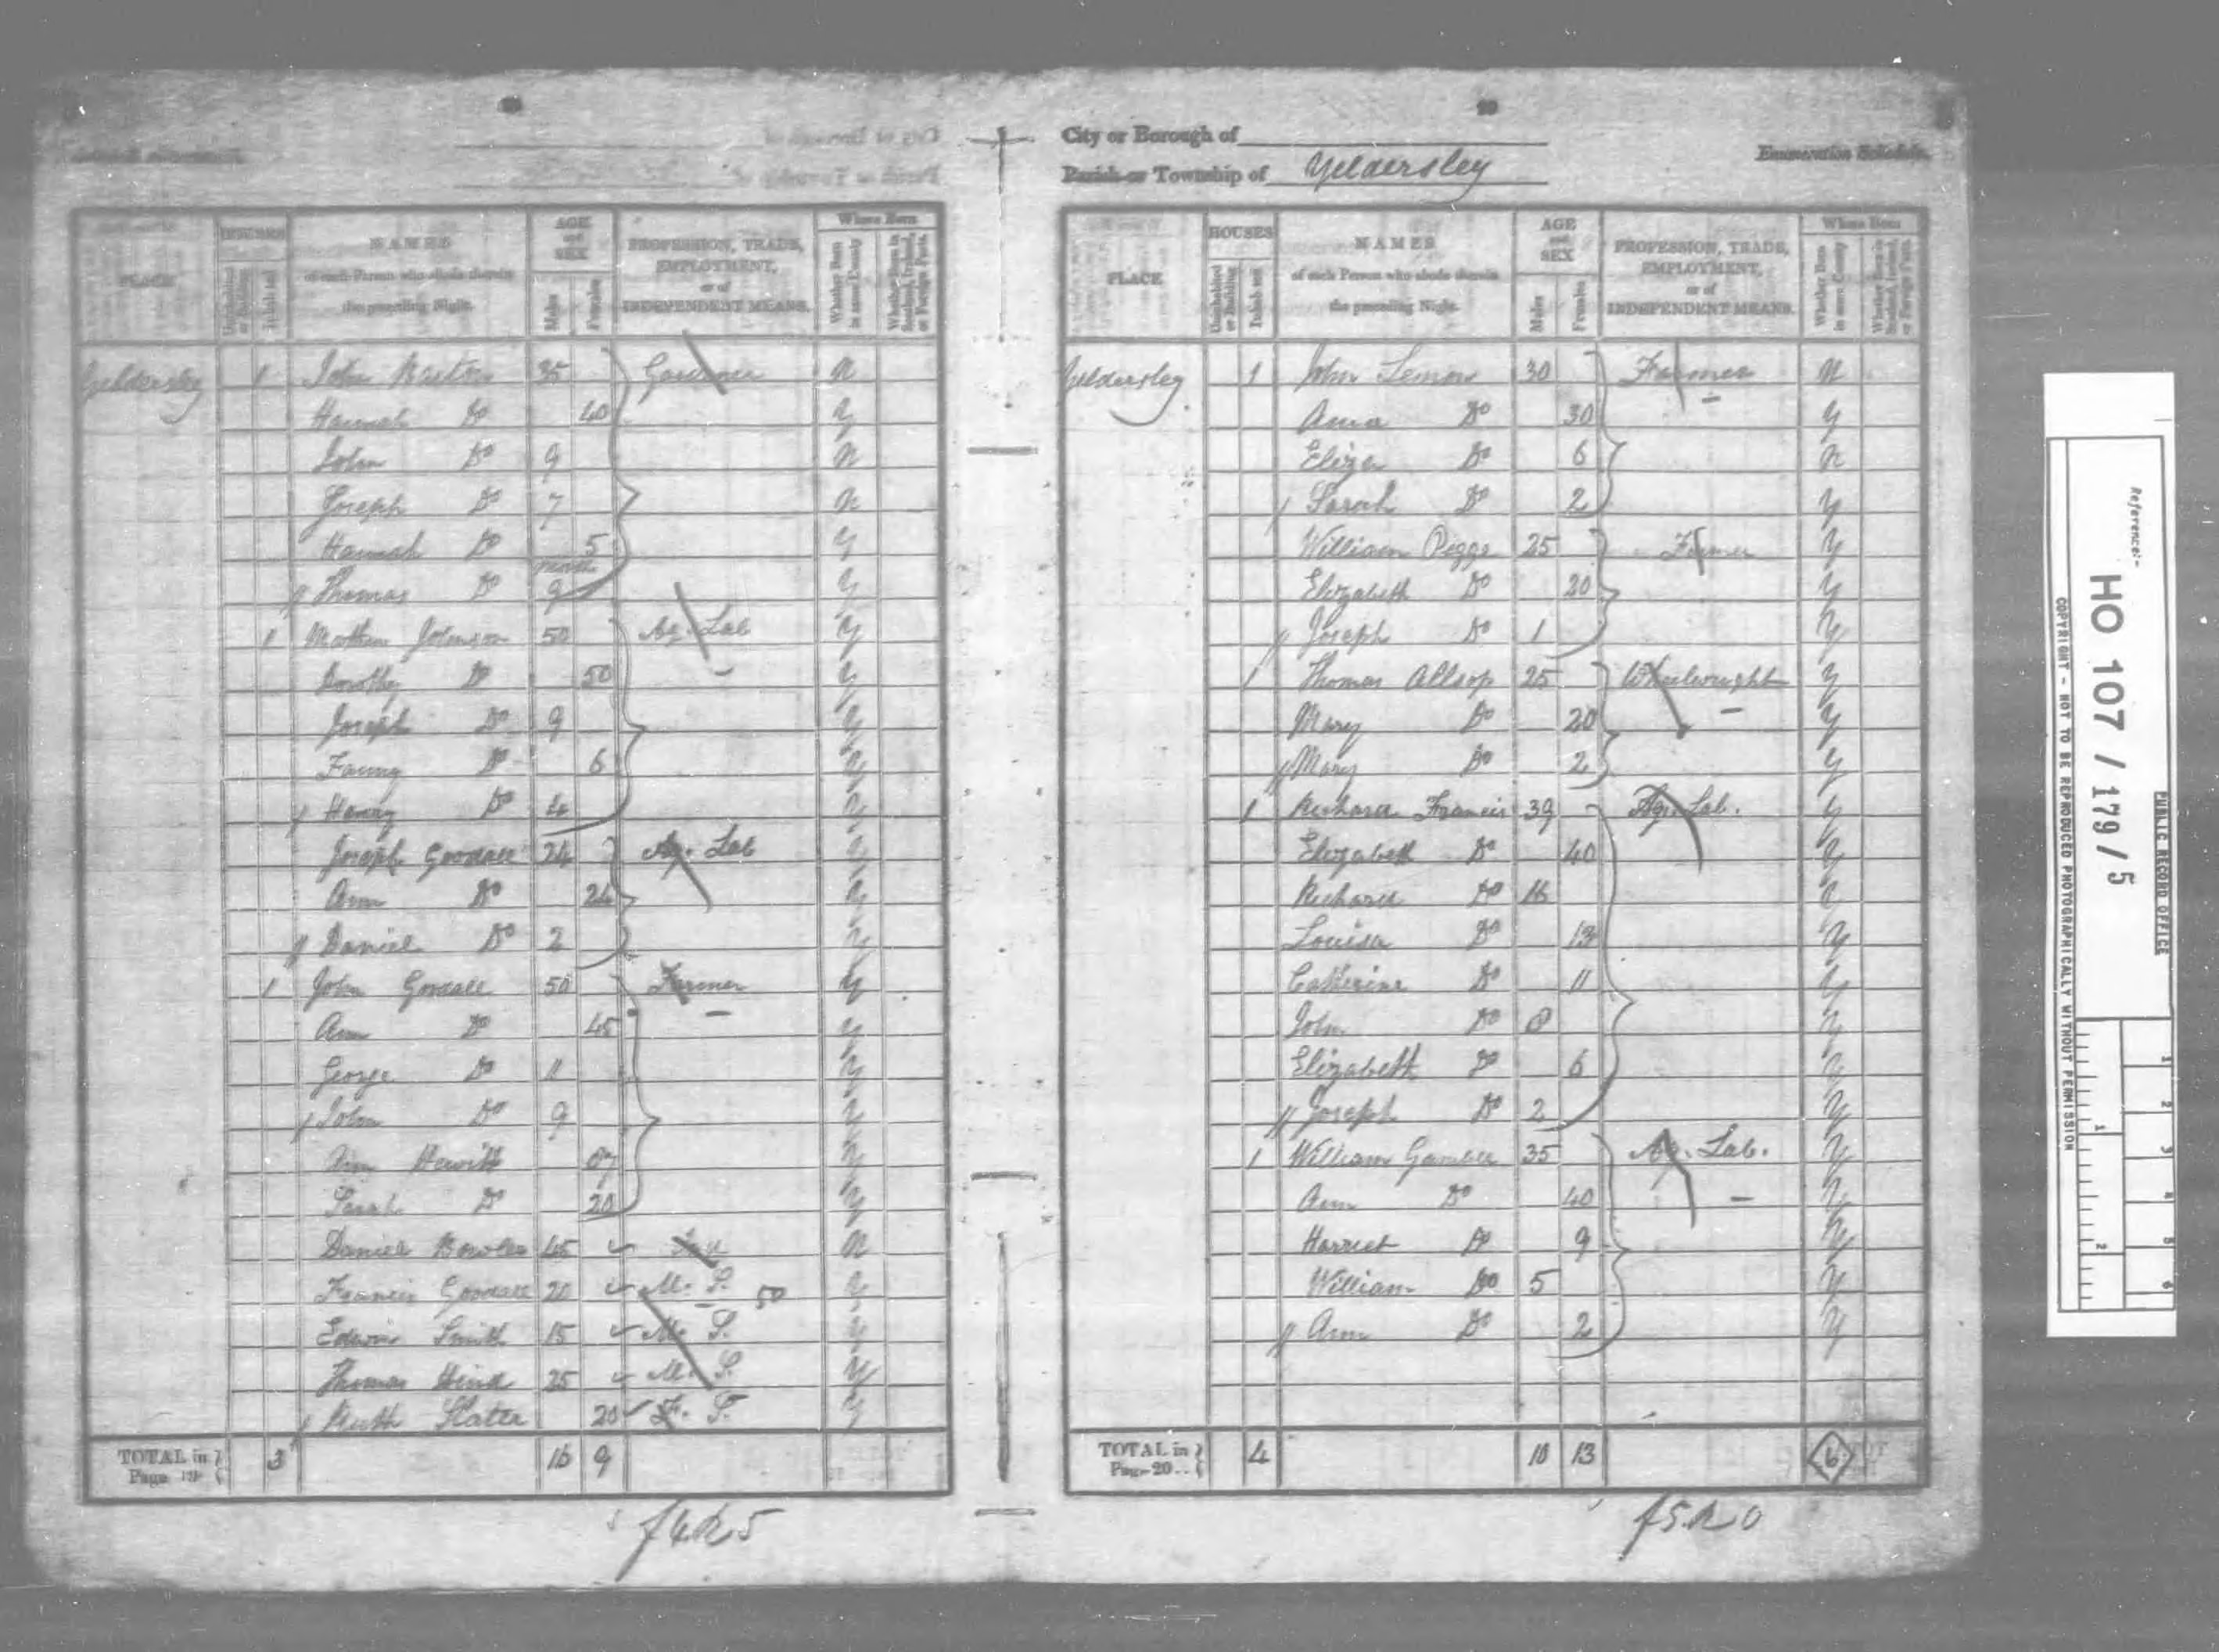 City or Borough of
Parish or Township of Yeldersley
Enumeration Schedule.
PLACE
HOUSES
Uninhabited or Building
Inhabited
NAMES
of each Person who abode therein
the preceding Night.
AGE
and
SEX
Males
Females
PROFESSION, TRADE,
EMPLOYMENT,
or of
INDEPENDENT MEANS.
Where Born
Whether Born in same County
Whether Born in Scotland, Ireland, or Foreign Parts.
Yeldersley 1 John 35 N
Hannah Do 40 Y
John Do 9 N
Joseph Do 7 N
Hannah Do 5 Y
Thomas Do 9 month Y
1 Johnson 50 Ag. Lab Y
Dorothy Do 50 Y
Joseph Do 9 Y
Fanny Do 6 Y
Henry Do 4 Y
Joseph Goodall 24 Ag. Lab Y
Ann Do 24 Y
Daniel Do 2 Y
1 John Goodall 50 Farmer Y
Ann Do 45 Y
George Do 11 Y
John Do 9 Y
Ann Hewitt Y
Sarah Do 20 Y
Daniel Bowler 45 Ind N
Francis Goodall 20 M. S. 50 Y
Edwin Smith 15 M. S. Y
Thomas Hind 25 M. S. Y
Ruth Slater 20 F. S. Y
TOTAL in Page 19 3 16 9
f4.R5
PLACE
HOUSES
Uninhabited or Building
Inhabited
NAMES
of each Person who abode therein
the preceding Night.
AGE
and
SEX
Males
Females
PROFESSION, TRADE,
EMPLOYMENT,
or of
INDEPENDENT MEANS.
Where Born
Whether Born in same County
Whether Born in Scotland, Ireland, or Foreign Parts.
Yeldersley 1 John 30 Farmer N
Do 30 Y
Eliza Do 6 N
Sarah Do 2 Y
William Pegge 25 Farmer Y
Elizabeth Do 20 Y
Joseph Do 1 Y
1 Thomas Allsop 25 Wheelwright Y
Mary Do 20 Y
Mary Do 2 Y
1 Richard Francis 39 Ag. Lab. Y
Elizabeth Do 40 Y
Richard Do 16 Y
Louisa Do 13 Y
Catherine Do 11 Y
John Do 8 Y
Elizabeth Do 6 Y
Joseph Do 2 Y
1 William Gamble 35 Ag. Lab. Y
Ann Do 40 Y
Harriet Do 9 Y
William Do 5 Y
Ann Do 2 Y
TOTAL in Page 20 4 10 13 6
f5.R0
Reference:-
HO 107 / 179 / 5
PUBLIC RECORD OFFICE
COPYRIGHT - NOT TO BE REPRODUCED PHOTOGRAPHICALLY WITHOUT PERMISSION
1
2
1 2 3 4 5 6